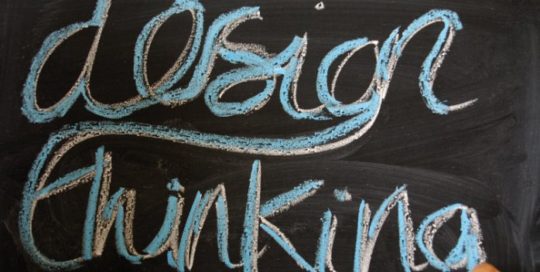 design
thinking